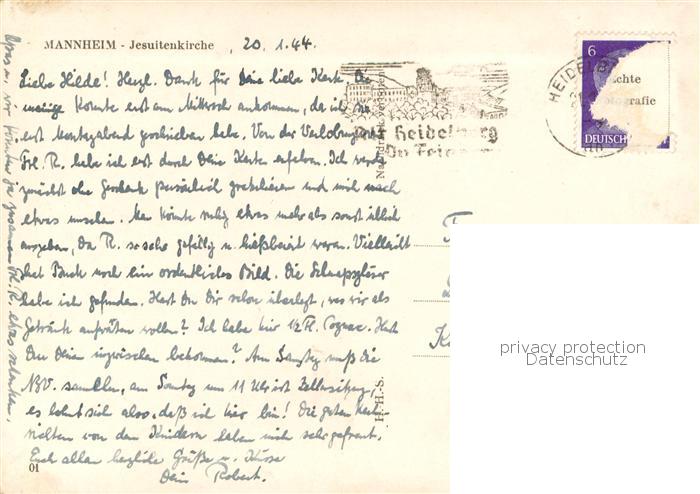 MANNHEIM - Jesuitenkirche , 20. 1. 44.
Liebe Hilde! Herzl. Dank für Deine liebe Karte. Die
meinige konnte erst am Mittwoch ankommen, da ich sie
erst Montagabend geschrieben habe. Von der Verlobung
Frl. R. habe ich erst durch Deine Karte erfahren. Ich werde
zunächst ohne Geschenk persönlich gratulieren und mich nach
etwas umsehen. Man könnte ruhig etwas mehr als sonst üblich
ausgeben, da R. so sehr gefällig u. hilfsbereit waren. Vielleicht
hat Buck noch ein ordentliches Bild. Die Schnapsgläser
habe ich gefunden. Hast Du Dir schon überlegt, was wir als
Getränk auftischen wollen? Ich habe hier 1/2 Fl. Cognac. Hast
Du Deine inzwischen bekommen? Am Samstag muß die
NSV. sammeln, am Sonntag um 11 Uhr ist
es lohnt sich also, daß ich hier bin! Die guten Nach-
richten von den Kindern haben mich sehr gefreut.
Euch allen herzliche Grüße u. Küsse
Dein Robert.
wir könnten ja zusammen Frl. R. etwas schenken.
01
H.-H.-S.
HEIDELB
Heidelberg
6
chte
grafie
DEUTSCH
privacy protection
Datenschutz